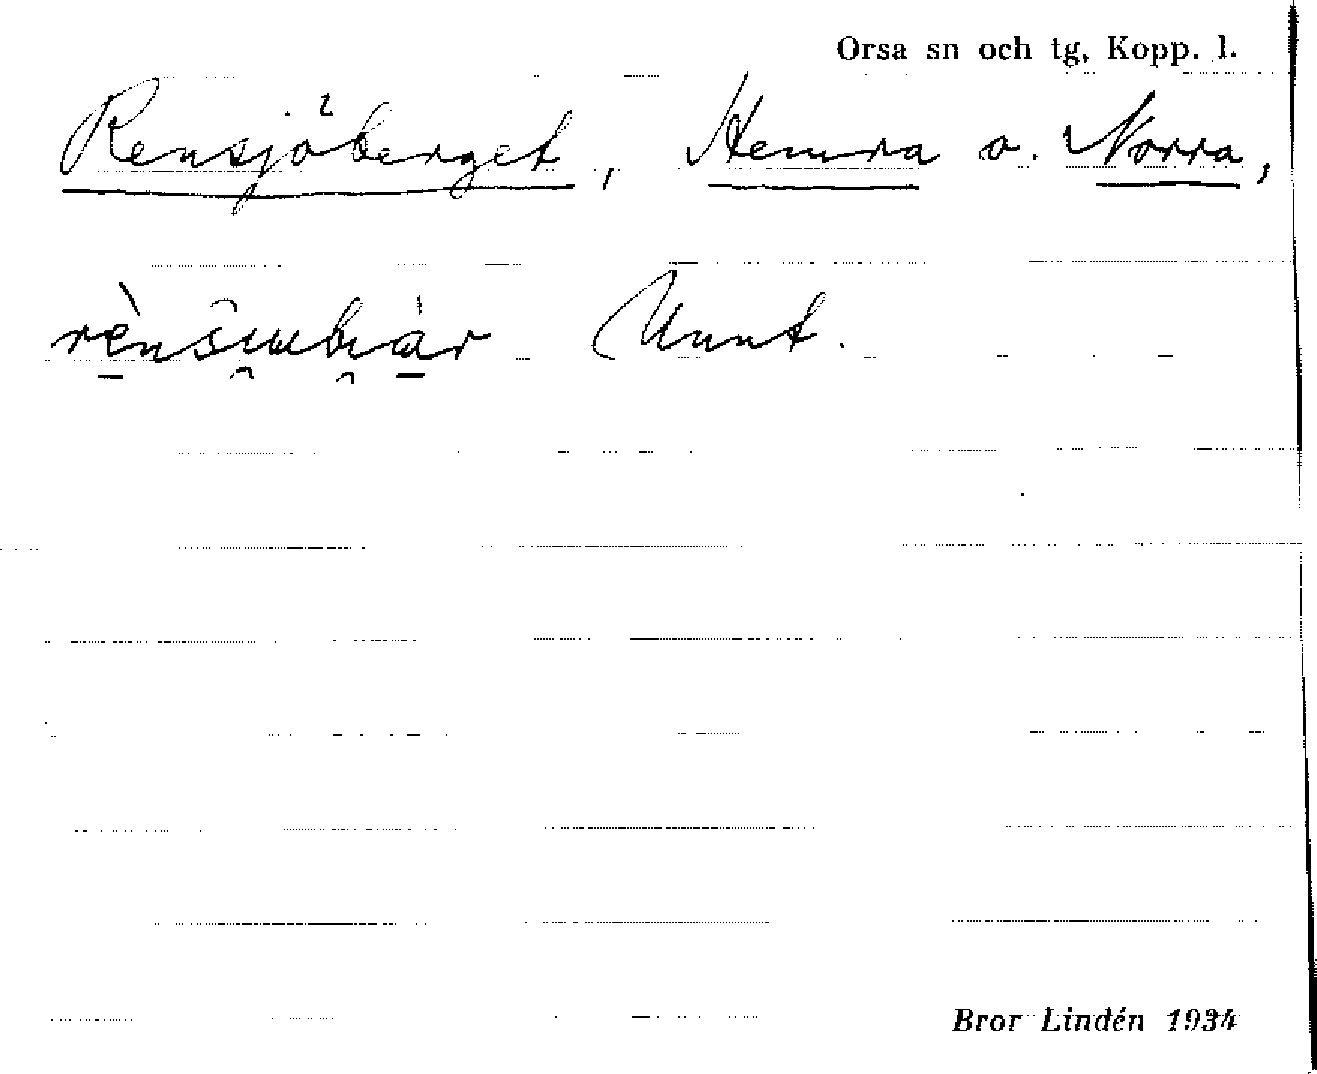 Orsa sn och tg, Kopp. l.
Rensjöberget, Hemra o. Norra,
Bror Lindén 1934